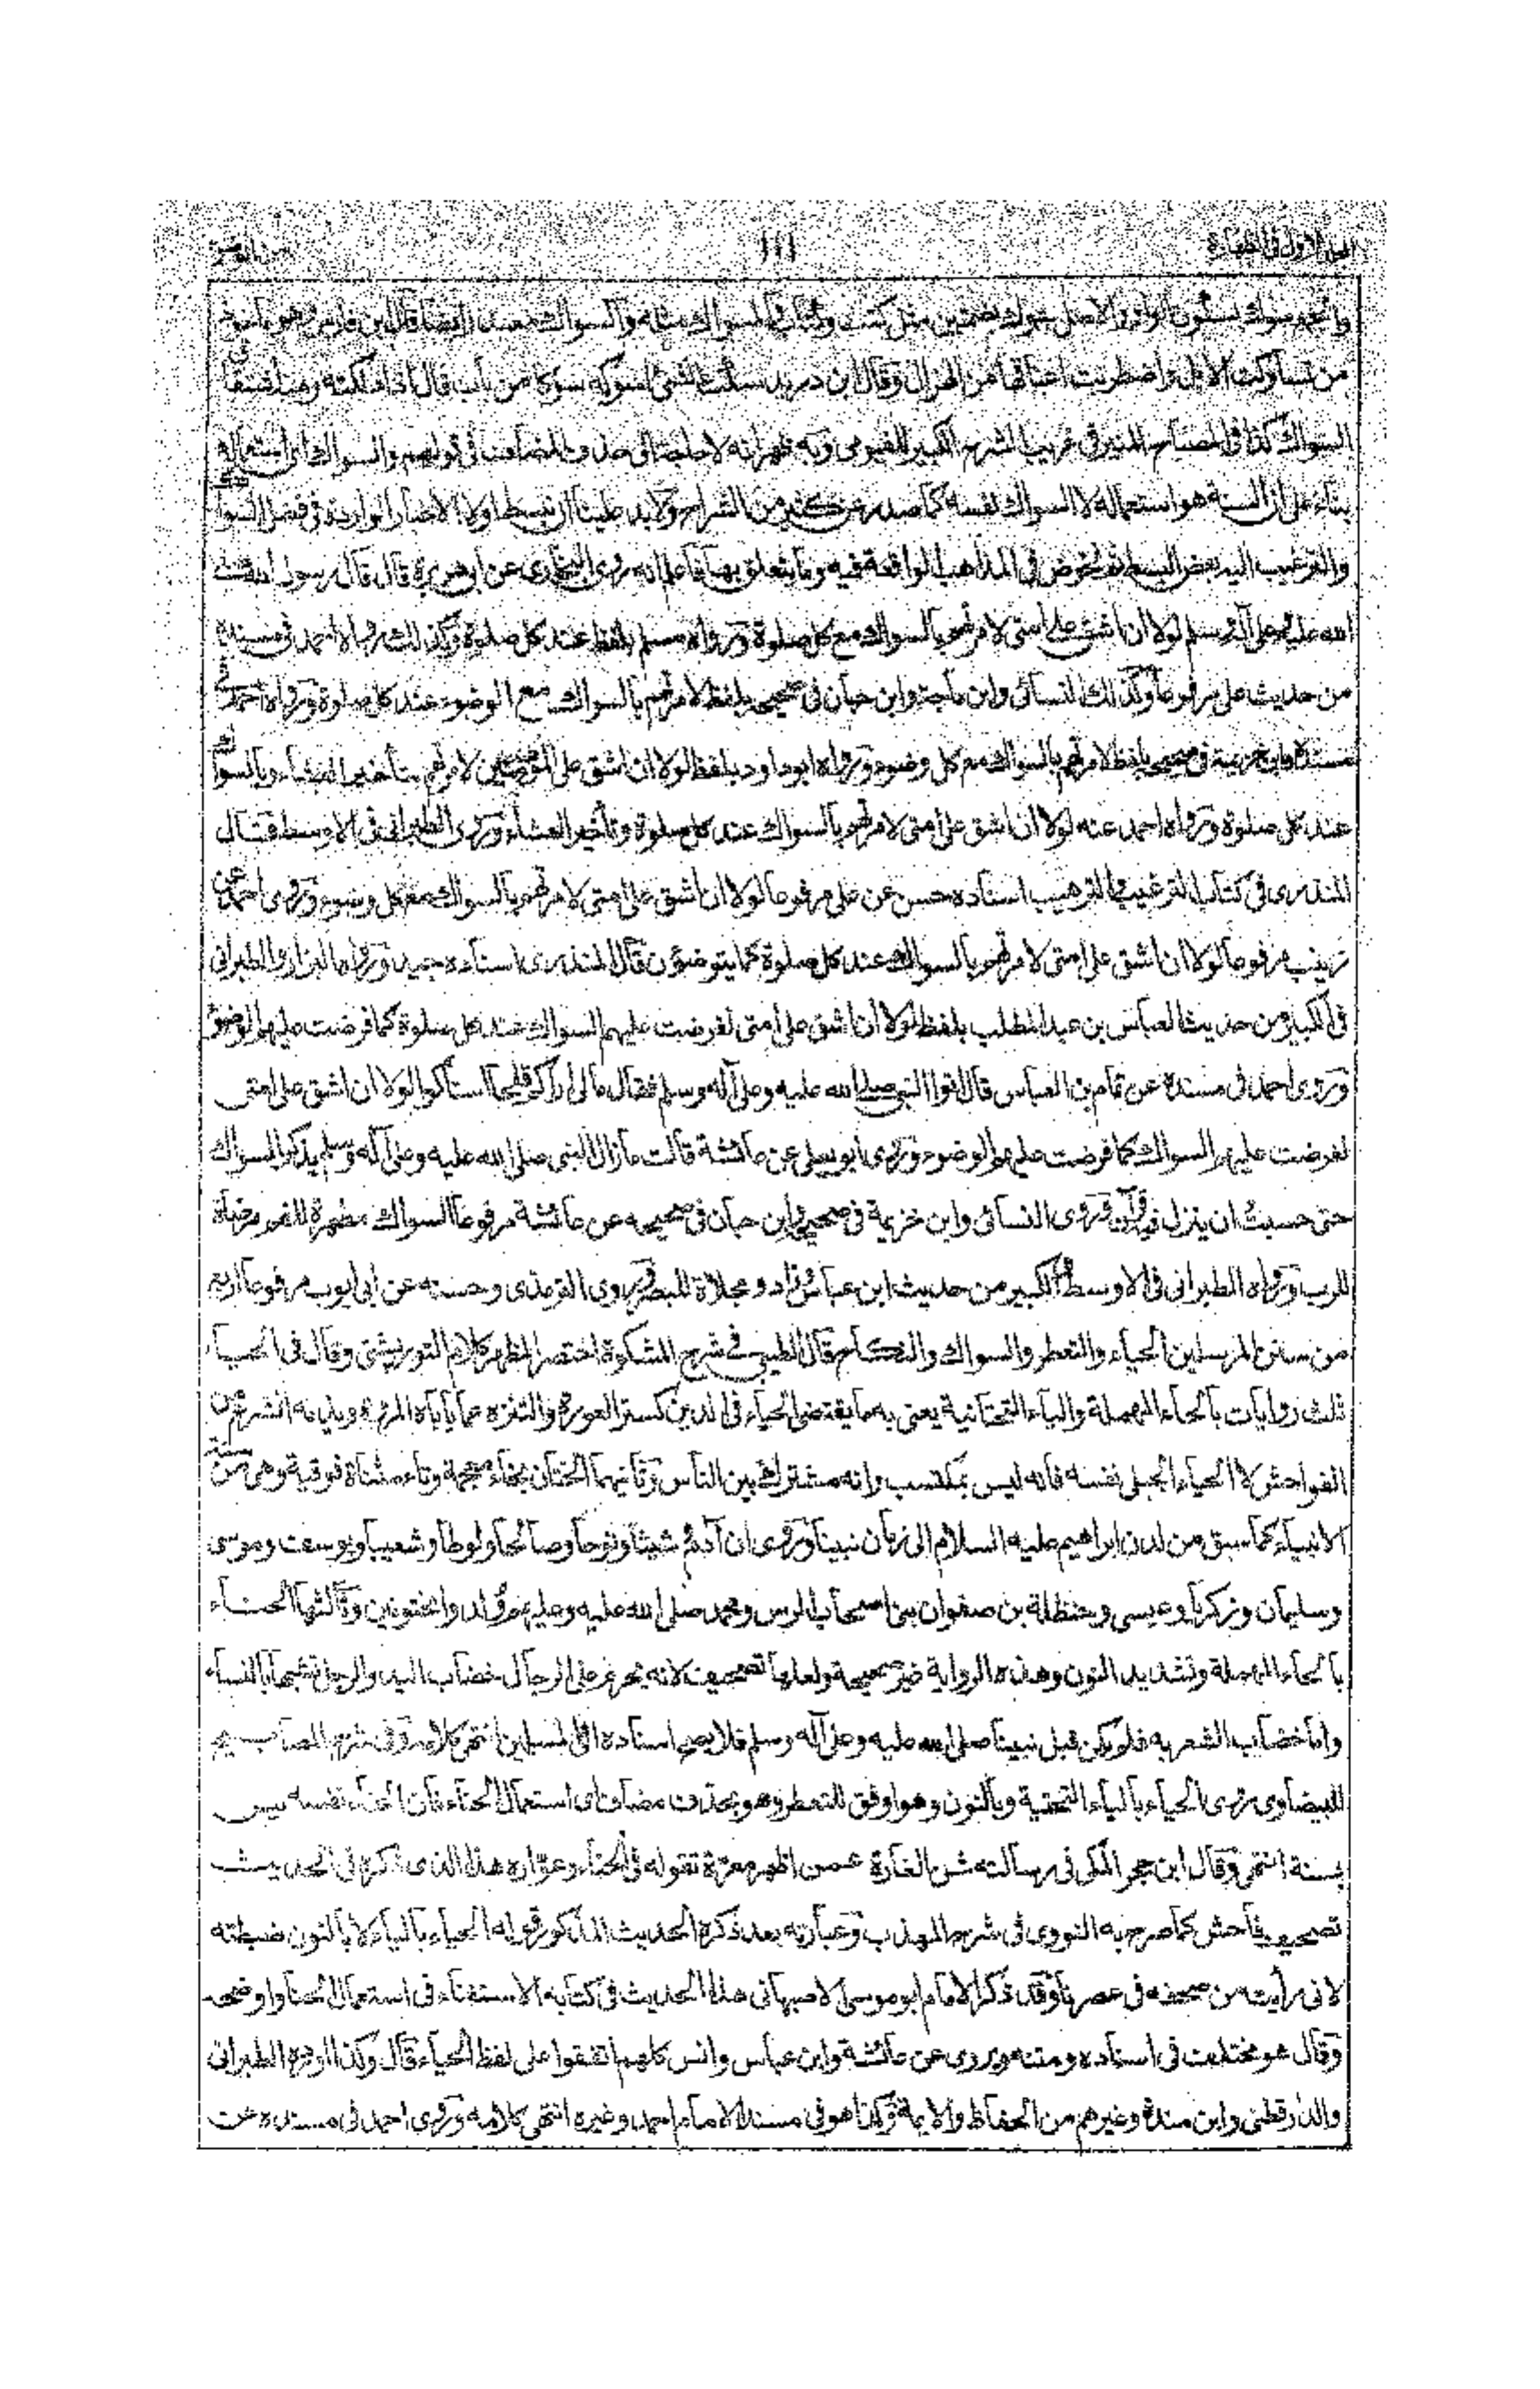 ١١١
والجمع سوك بسكون الواو والاصل سوك بضمتين مثل كتب وكتاب والمسواك مثله والسواك مصدر ايضا قال ابن فارس وهو مأخوذ
من تساوكت الابل اذا اضطربت اعناقها من الهزال وقال ابن دريد سكت الشئ اسوكه سوكا من باب قال اذا دلكته ومنه اشتقاق
السواك كذا فى المصباح المنير فى غريب الشرح الكبير للفيومى وبه ظهر انه لا حاجة الى حذف المضاف فى قولهم والسواك اى استعماله
بناء على ان السنة هو استعماله لا السواك نفسه كما صدر عن كثير من الشراح ولابد علينا ان نبسط اولا الاخبار الواردة فى فضل السواك
والترغيب اليه بعض البسط ثم نخوض فى المذاهب الواقعة فيه وما يتعلق بها فاعلم انه روى البخارى عن ابى هريرة قال قال رسول الله صلى
الله عليه وعلى آله وسلم لولا ان اشق على امتى لامرتهم بالسواك مع كل صلوة ورواه مسلم بلفظ عند كل صلوة وكذلك رواه احمد فى مسنده
من حديث على مرفوعا وكذلك النسائى وابن ماجة وابن حبان فى صحيحه بلفظ لامرتهم بالسواك مع الوضوء عند كل صلوة ورواه احمد فى
مسنده وابن خزيمة فى صحيحه بلفظ لامرتهم بالسواك مع كل وضوء ورواه ابو داود بلفظ لولا ان اشق على المؤمنين لامرتهم بتأخير العشاء وبالسواك
عند كل صلوة ورواه احمد عنه لولا ان اشق على امتى لامرتهم بالسواك عند كل صلوة وتأخير العشاء وروى الطبرانى فى الاوسط قال
المنذرى فى كتاب الترغيب والترهيب اسناده حسن عن على مرفوعا لولا ان اشق على امتى لامرتهم بالسواك مع كل وضوء وروى احمد عن
زينب مرفوعا لولا ان اشق على امتى لامرتهم بالسواك عند كل صلوة كما يتوضؤن قال المنذرى اسناده جيد ورواه البزار والطبرانى
فى الكبير من حديث العباس بن عبد المطلب بلفظ لولا ان اشق على امتى لفرضت عليهم السواك عند كل صلوة كما فرضت عليهم الوضوء
وروى احمد فى مسنده عن تمام بن العباس قال اتوا النبى صلى الله عليه وعلى آله وسلم فقال مالى اراكم قلحا استاكوا لولا ان اشق على امتى
لفرضت عليهم السواك كما فرضت عليهم الوضوء وروى ابو يعلى عن عائشة قالت ما زال النبى صلى الله عليه وعلى آله وسلم يذكر السواك
حتى حسبت ان ينزل فيه قرآن وروى النسائى وابن خزيمة فى صحيحه وابن حبان فى صحيحه عن عائشة مرفوعا السواك مطهرة للفم مرضاة
للرب ورواه الطبرانى فى الاوسط والكبير من حديث ابن عباس وزاد ومجلاة للبصر وروى الترمذى وحسنه عن ابى ايوب مرفوعا اربع
من سنن المرسلين الحياء والتعطر والسواك والنكاح قال الطيبى فى شرح المشكوة اختصر المظهر كلام التوربشتى وقال فى الحياء
ثلث روايات بالحاء المهملة والياء التحتانية يعنى به ما يقتضى الحياء فى الدين كستر العورة والتنزه عما يأباه المرءة ويذمه الشرع من
الفواحش لا الحياء الجبلى نفسه فانه ليس بمكتسب وانه مشترك بين الناس وثانيهما الختان بخاء معجمة وتاء مثناة فوقية وهى من سنة
الانبياء كما سبق من لدن ابراهيم عليه السلام الى زمان نبينا وروى ان آدم وشيثا ونوحا وصالحا ولوطا وشعيبا ويوسف وموسى
وسليمان وزكريا وعيسى وحنظلة بن صفوان نبى اصحاب الرس ومحمد صلى الله عليه وعليهم ولدوا مختونين وثالثها الحناء
بالحاء المهملة وتشديد النون وهذه الرواية غير صحيحة ولعلها تصحيف لانه يحرم على الرجال خضاب اليد والرجل تشبها بالنساء
واما خضاب الشعر به فلم يكن قبل نبينا صلى الله عليه وعلى آله وسلم فلا يصح اسناده الى المرسلين انتهى كلامه وفى شرح المصابيح
للبيضاوى روى الحياء بالياء التحتية وبالنون وهو اوفق للتعطر وهو بحذف مضاف اى استعمال الحناء فان الحناء نفسه ليس
بسنة انتهى وقال ابن حجر المكى فى رسالته شن الغارة عمن اظهر معرة تقوله فى الحناء وعواره هذا الذى ذكره فى الحديث
تصحيف فاحش كما صرح به النووى فى شرح المهذب وعبارته بعد ذكره الحديث المذكور قوله الحياء بالياء لا بالنون ضبطته
لانى رأيت من صحفه فى عصرنا وقد ذكر الامام ابو موسى الاصبهانى هذا الحديث فى كتابه الاستفتاء فى استعمال الحنا واوضحه
وقال هو مختلف فى اسناده ومتنه ويروى عن عائشة وابن عباس وانس كلهم اتفقوا على لفظ الحياء قال وكذا اورده الطبرانى
والدارقطنى وابن مندة وغيرهم من الحفاظ والايمة وكذا هو فى مسند الامام احمد وغيره انتهى كلامه وروى احمد فى مسنده عن